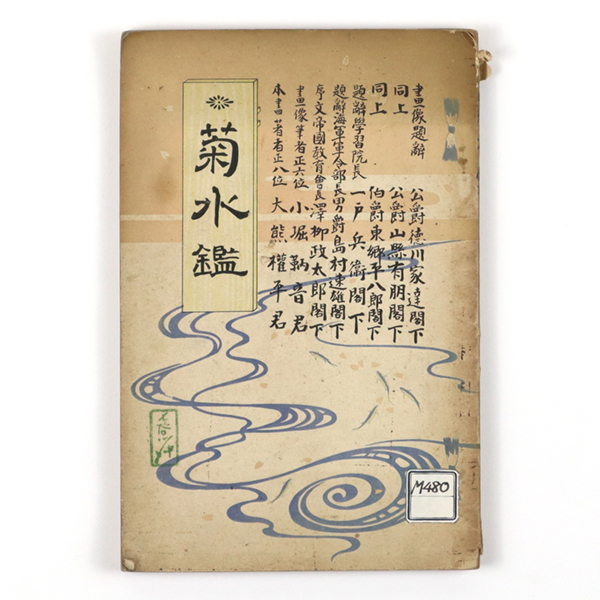 書画像題辞 公爵徳川家達閣下
同上 公爵山縣有朋閣下
同上 伯爵東郷平八郎閣下
題辞學習院長 一戸兵衞閣下
題辞海軍軍令部長男爵島村速雄閣下
序文帝國教育會長澤柳政太郎閣下
畫像筆者正六位 小堀鞆音君
本書著者正八位 大熊權平君
菊水鑑
M480